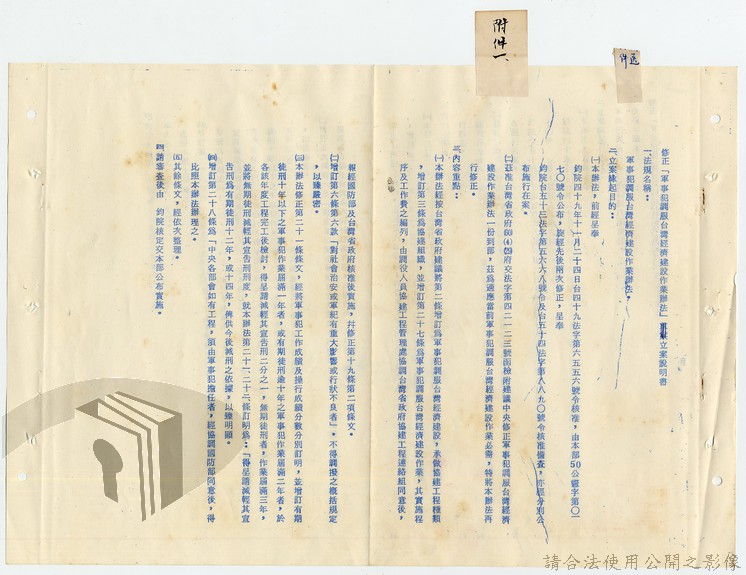 附件一、
修正「軍事犯調服台灣經濟建設作業辦法」
立案說明書
一、法規名稱:
軍事犯調服台灣經濟建設作業辦法。
二、立案緣起目的:
㈠本辦法,前經呈奉
鈞院四十九年十一月二十四日台四十九法字第六五五六號令核准,由本部50公
七〇號令公布,嗣經先後兩次修正,呈奉
鈞院台五十三法字第五六六八號令及台五十四法字第八八九〇號令核准備查,亦經分別公
布施行在案。
㈡茲准台灣省政府
府交法字第四二一二三號函檢附建議中央修正軍事犯調服台灣經濟
建設作業辦法一份到部,茲為適應當前軍事犯調服台灣經濟建設作業必需,特將本辦法再
行修正。
三、內容重點:
㈠本辦法經按台灣省政府建議將第二條增訂為軍事犯調服台灣經濟建設作業,承做協建工程種類
,增訂第三條為協建組織,並增訂第二十七條為軍事犯調服台灣經濟建設作業,其實施程
序及工作費之編列,由調役人員協建工程管理處協調台灣省政府協建工程連絡組同意後,
報經國防部及台灣省政府核准後實施,并修正第十九條第二項條文。
㈡增訂第六條第六款「對社會治安或軍紀有重大影響或行狀不良者」。不得調撥之概括規定
,以臻嚴密。
㈢本辦法修正第二十一條條文,經將軍事犯工作成績及操行成績分數分別訂明,並增訂有期
徒刑十年以下之軍事犯作業屆滿一年者,或有期徒刑逾十年之軍事犯作業屆滿二年者,於
各該年度工程完工後檢討,得呈請減輕其宣告刑二分之一,無期徒刑者,作業屆滿三年,
並將無期徒刑減輕其宣告刑刑度,就本辦法第二十一、二十二條訂明為:「得呈請減輕其宣
告刑為有期徒刑十二年,或十四年,俾供今後減刑之依據,以臻明顯。
㈣增訂第二十八條為「中央各部會如有工程,須由軍事犯擔任者,經協調國防部同意後,得
比照本辦法辦理之。
㈤其餘條文,經依次整理。
四、請審查後由 鈞院核定交本部公布實施。
請合法使用公開之影像